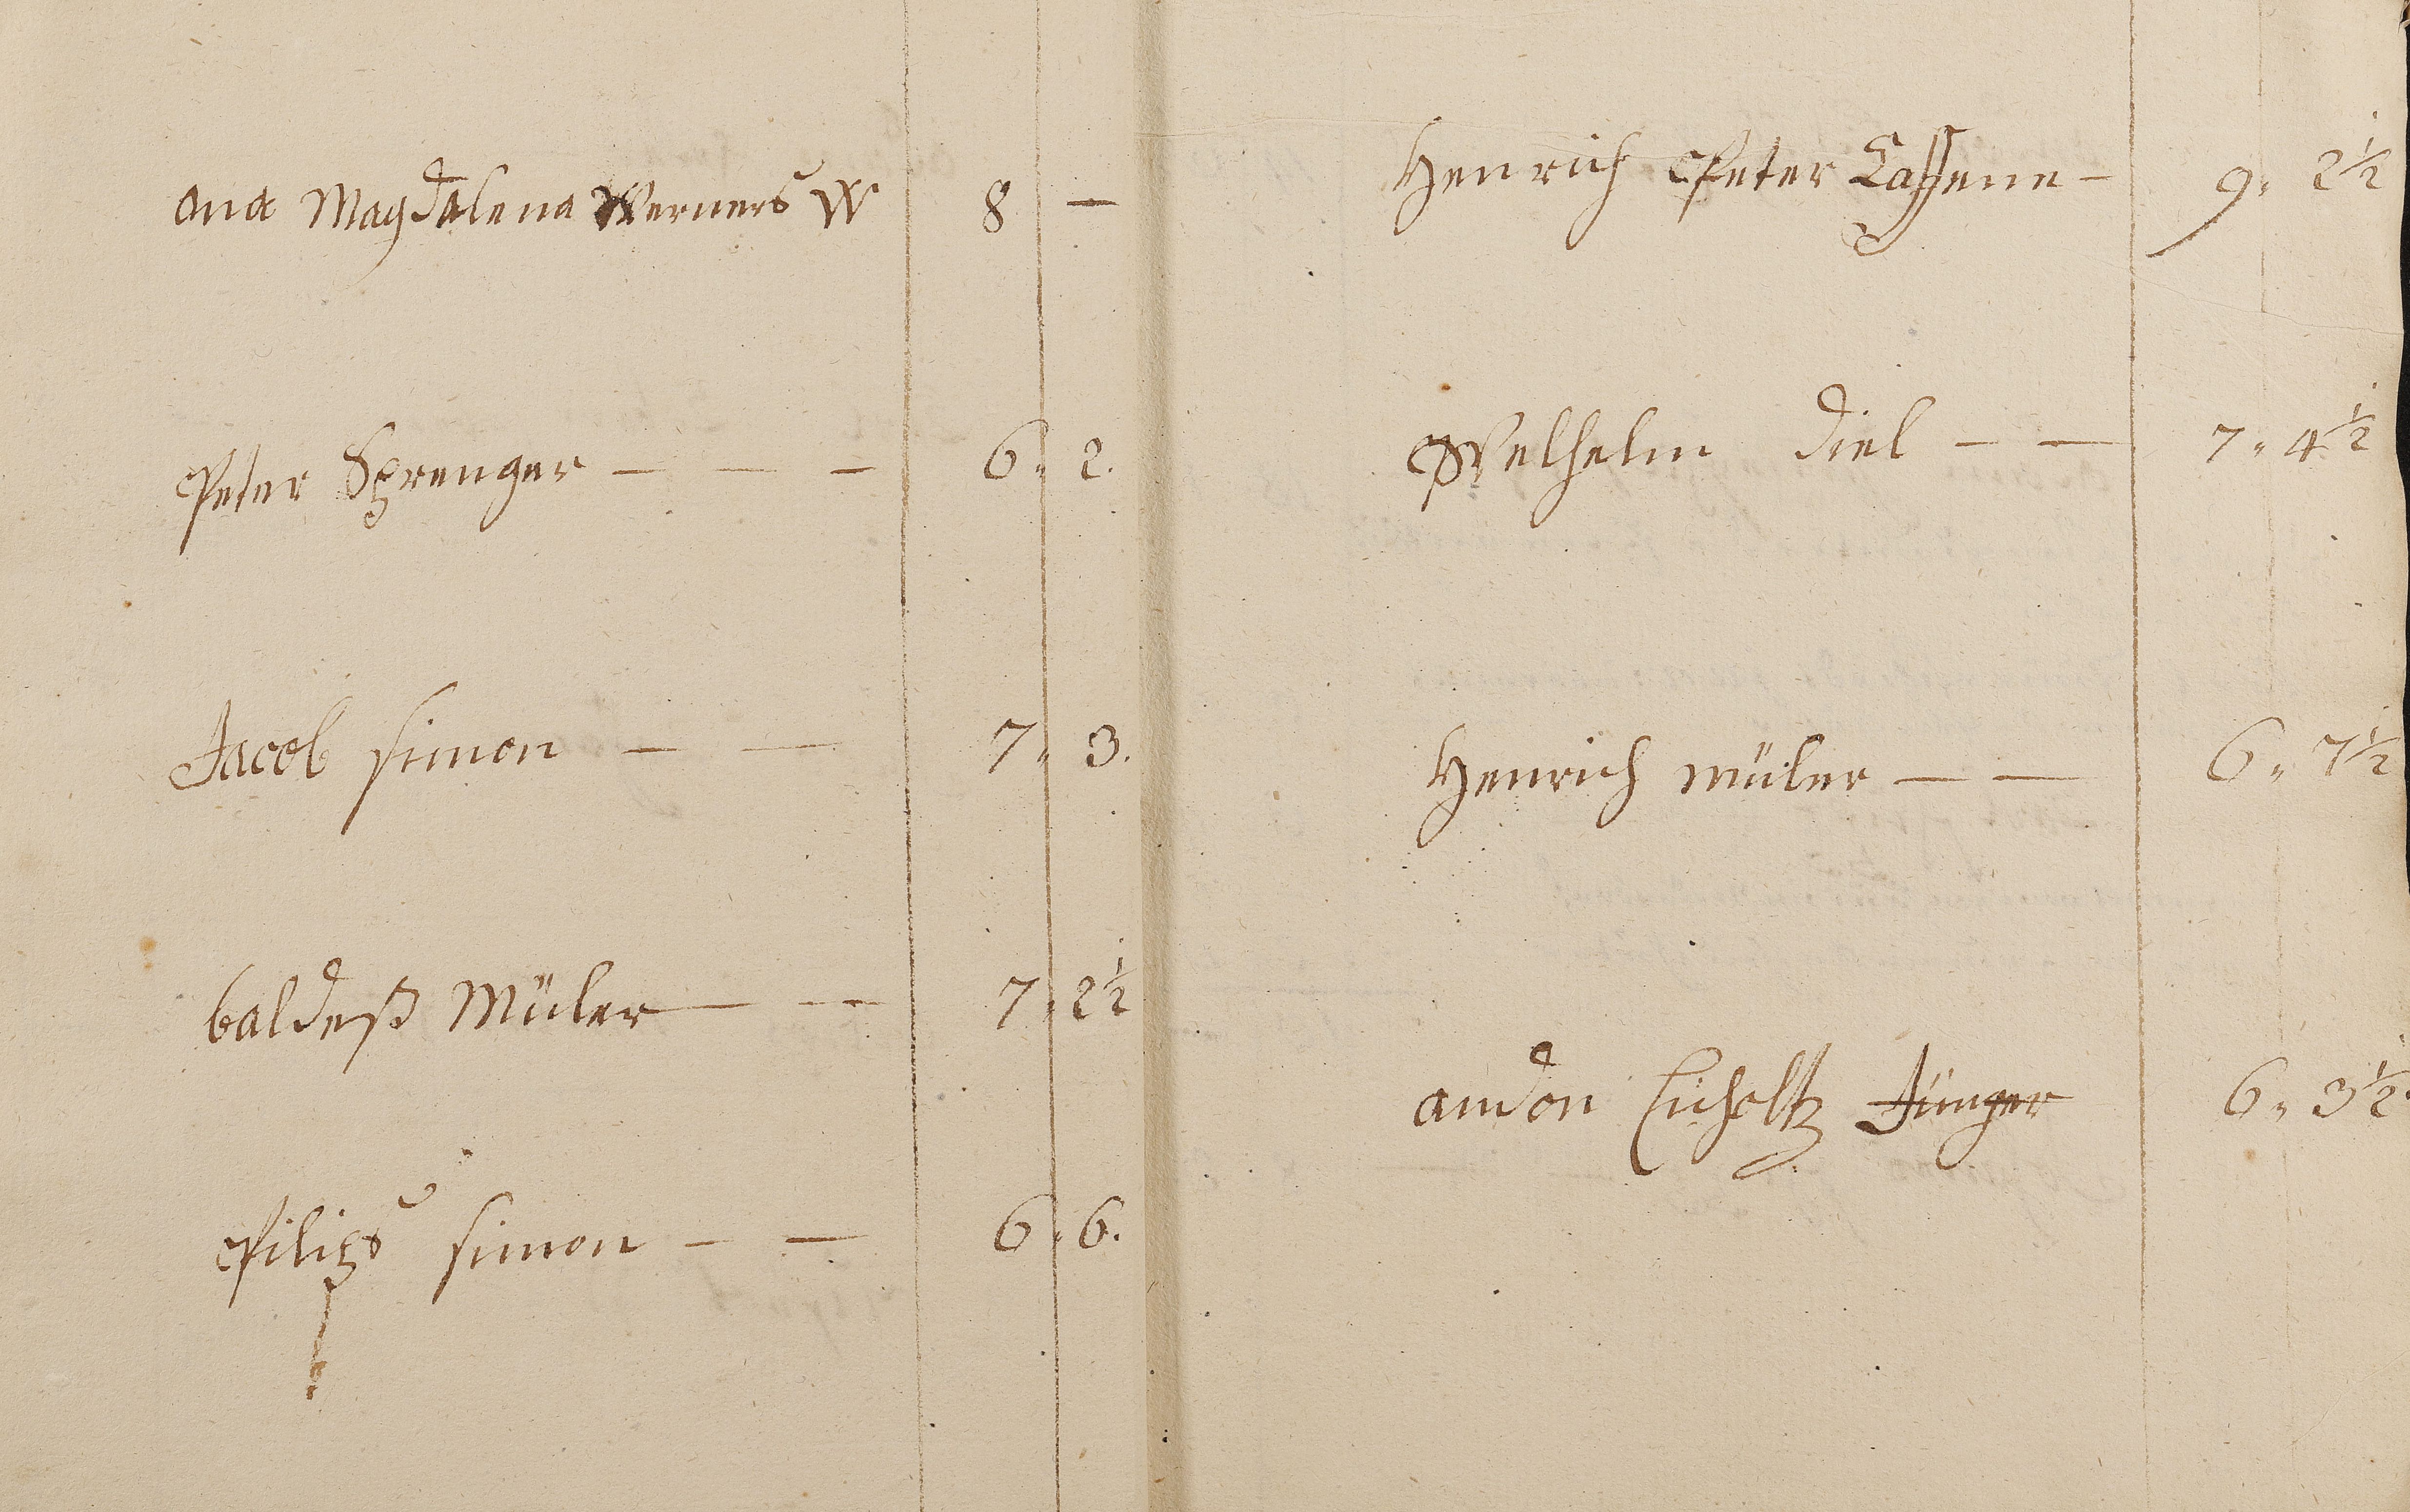 ana Magdalena Werners W 8 —
Peter Sprenger — — — 6 " 2.
Jacob simon — — 7 " 3.
baldeß Müler — — 7 " 2½
Pilips simon — — 6 " 6.
Henrich Peter Lassene — 9 " 2½
Welhelm diel — — 7 " 4½
Henrich müler — — 6 " 7½
andon Eicholtz Jünger 6 " 3½